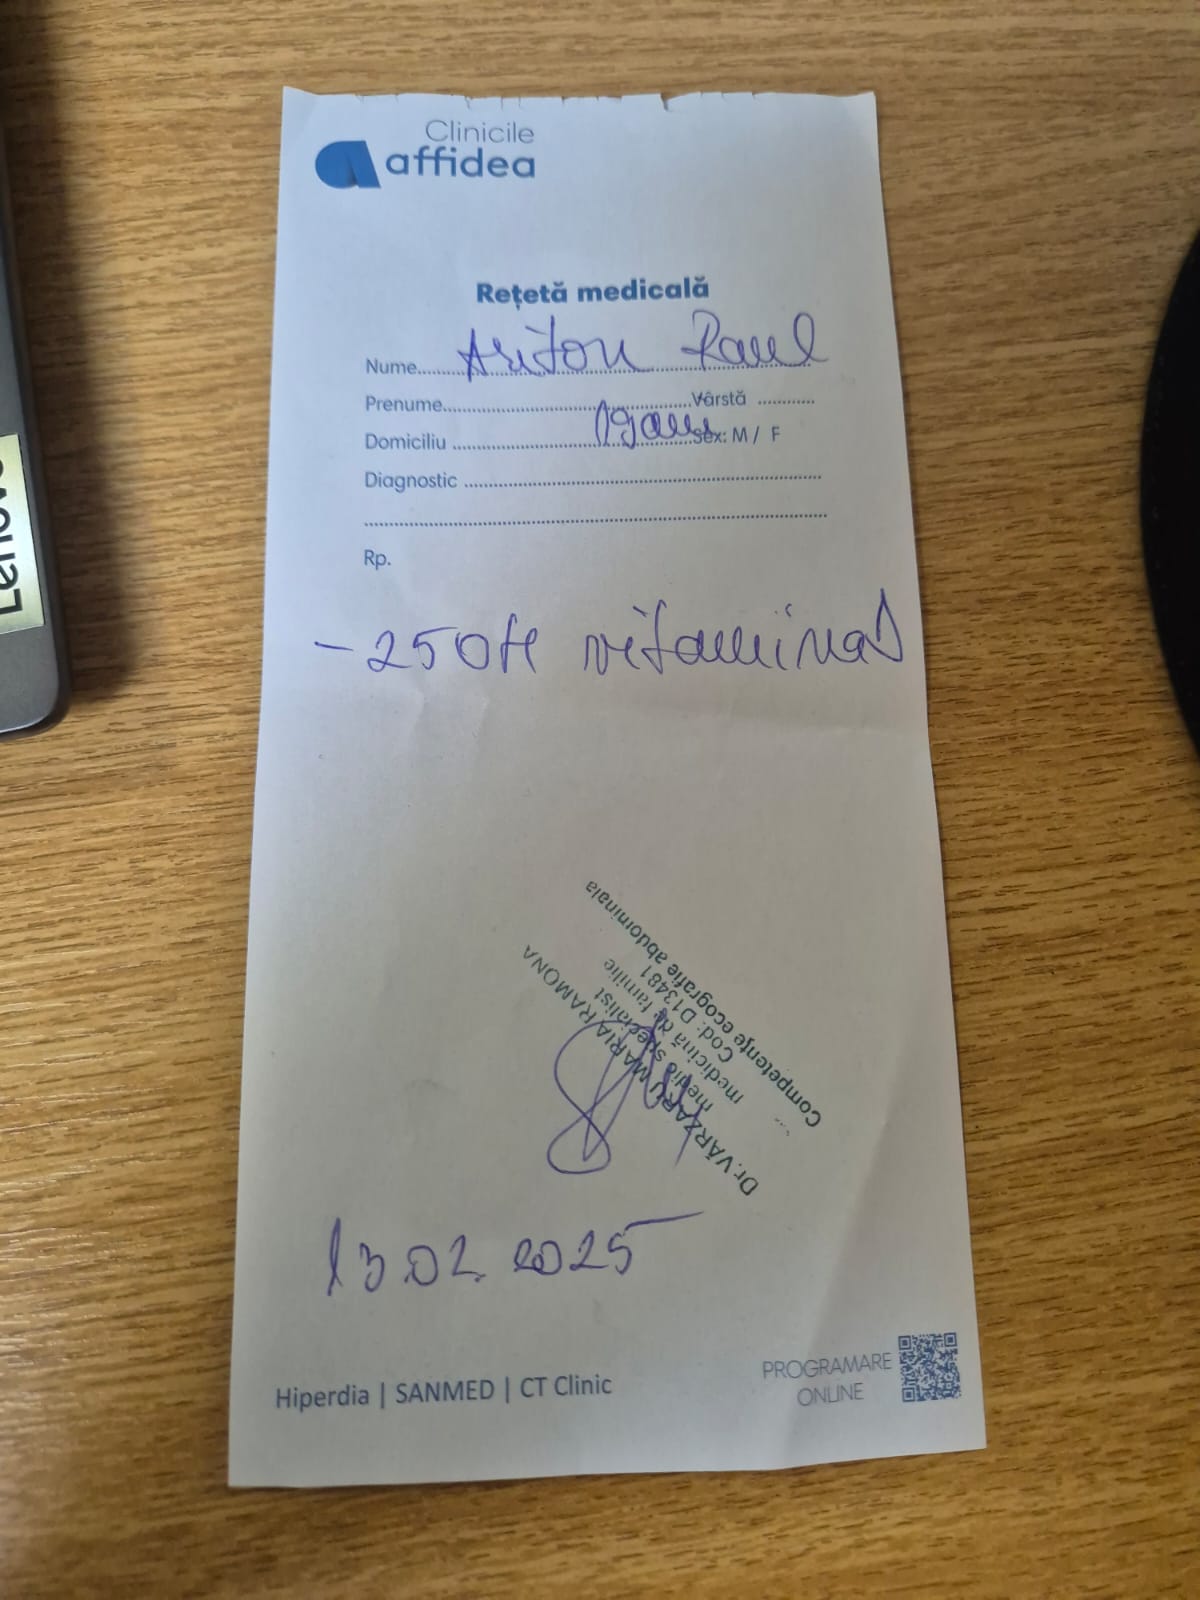 Clinicile
affidea
Rețetă medicală
Nume Ariton Paul
Prenume Vârstă
Domiciliu 19ani Sex: M / F
Diagnostic
Rp.
- 25OH vitamina D
Dr. VÂRZARU MARIA RAMONA
medic specialist
medicină de familie
Cod: D13481
Competențe ecografie abdominala
13.02.2025
Hiperdia | SANMED | CT Clinic
PROGRAMARE
ONLINE
Lenovo